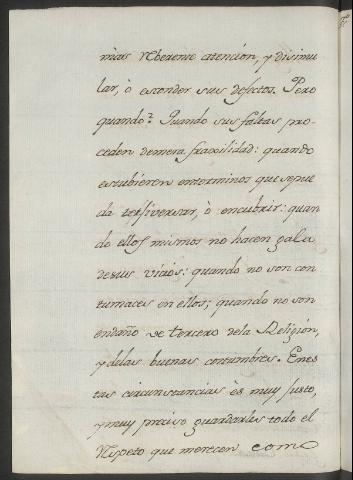 mas reberente atención, y disimu
lar, ò esconder sus defectos. Pero
quando? Quando sus faltas pro-
ceden de mera fraxilidad: quando
estubieren enterminos que sepue
da tersiversar, ò encubrir: quan
do ellos mismos no hacen gala
desus vicios: quando no son con
tumaces en ellos; quando no son
endaño de tercero dela Religión,
y delas buenas costumbres. Enes
tas circunstancias ès muy justo,
y muy preciso guardarles todo el
respeto que merecen como